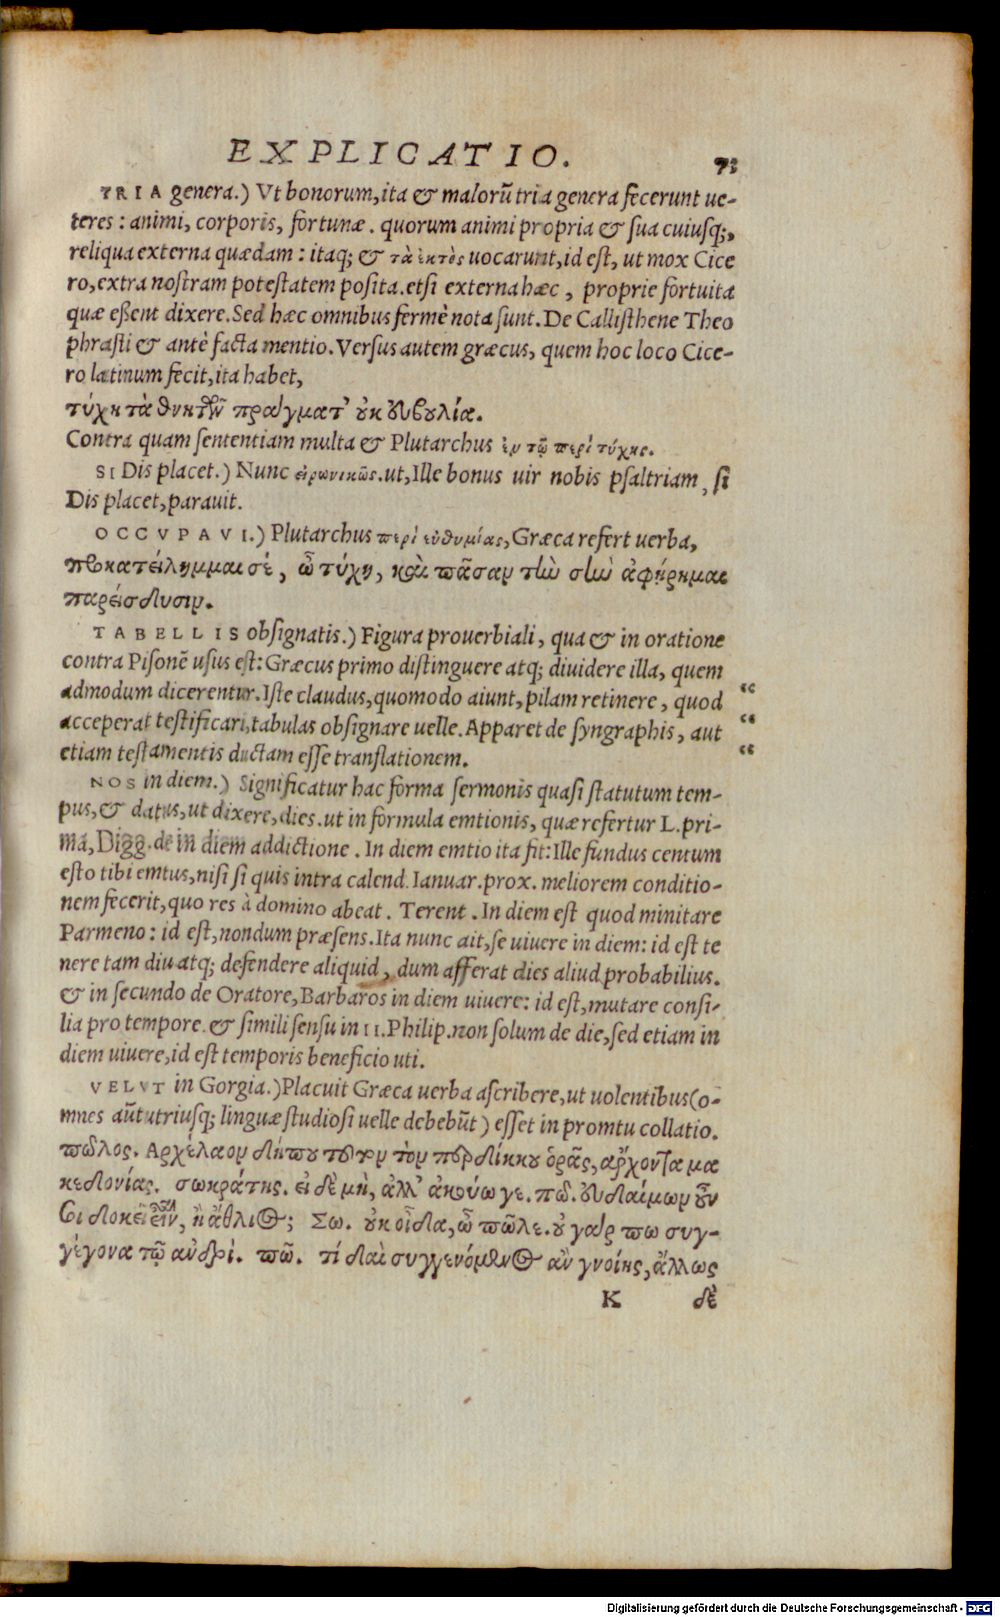 EXPLICATIO. 73
TRIA genera.) Vt bonorum, ita & malorū tria genera fecerunt ue-
teres: animi, corporis, fortunæ. quorum animi propria & sua cuiusq;,
reliqua externa quædam: itaq; & τὰ ἐκτὸς uocarunt, id est, ut mox Cice
ro, extra nostram potestatem posita. etsi externa hæc, proprie fortuita
quæ eßent dixere. Sed hæc omnibus fermè nota sunt. De Callisthene Theo
phrasti & antè facta mentio. Versus autem græcus, quem hoc loco Cice-
ro latinum fecit, ita habet,
τύχη τὰ θνητῶν πράγματ' οὐκ εὐβουλία.
Contra quam sententiam multa & Plutarchus ἐν τῷ περὶ τύχης.
SI Dis placet.) Nunc εἰρωνικῶς. ut, Ille bonus uir nobis psaltriam, si
Dis placet, parauit.
OCCVPAVI.) Plutarchus περὶ εὐθυμίας, Græca refert uerba,
προκατείλημμαι σέ, ὦ τύχη, καὶ πᾶσαν τὴν σὴν ἀφῄρημαι
παρείσδυσιν.
TABELLIS obsignatis.) Figura prouerbiali, qua & in oratione
contra Pisonē usus est: Græcus primo distinguere atq; diuidere illa, quem
admodum dicerentur. Iste claudus, quomodo aiunt, pilam retinere, quod “
acceperat testificari, tabulas obsignare uelle. Apparet de syngraphis, aut “
etiam testamentis ductam esse translationem. “
NOS in diem.) Significatur hac forma sermonis quasi statutum tem-
pus, & datus, ut dixere, dies. ut in formula emtionis, quæ refertur L. pri-
ma, Digg. de in diem addictione. In diem emtio ita fit: Ille fundus centum
esto tibi emtus, nisi si quis intra calend. Ianuar. prox. meliorem conditio-
nem fecerit, quo res à domino abeat. Terent. In diem est quod minitare
Parmeno: id est, nondum præsens. Ita nunc ait, se uiuere in diem: id est te
nere tam diu atq; defendere aliquid, dum afferat dies aliud probabilius.
& in secundo de Oratore, Barbaros in diem uiuere: id est, mutare consi-
lia pro tempore. & simili sensu in II. Philip. non solum de die, sed etiam in
diem uiuere, id est temporis beneficio uti.
VELVT in Gorgia.) Placuit Græca uerba ascribere, ut uolentibus (o-
mnes aūt utriusq; linguæ studiosi uelle debebūt) esset in promtu collatio.
πῶλος. Αρχέλαον δήπου τοῦτον τὸν περδίκκου ὁρᾷς, ἄρχοντα μα
κεδονίας. σωκράτης. εἰ δὲ μὴ, ἀλλ' ἀκούω γε. πώ. εὐδαίμων οὖν
σοι δοκεῖ εἶναι, ἢ ἄθλιος; Σω. οὐκ οἶδα, ὦ πῶλε. οὐ γάρ πω συγ-
γέγονα τῷ ἀνδρί. πῶ. τί δαὶ συγγενόμενος ἂν γνοίης, ἄλλως
K δὲ
Digitalisierung gefördert durch die Deutsche Forschungsgemeinschaft - DFG